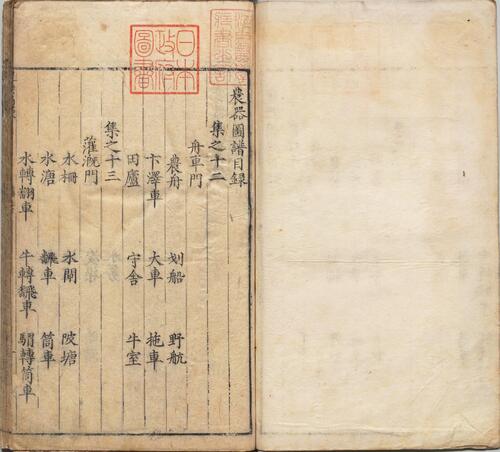 日本
政府
圖書
農器圖譜目録
集之十二
舟車門
農舟 划船 野航
卞澤車 大車 拖車
田廬 守舍 牛室
集之十三
灌漑門
水柵 水閘 陂塘
水塘 飜車 筒車
水轉翻車 牛轉飜車 驢轉筒車